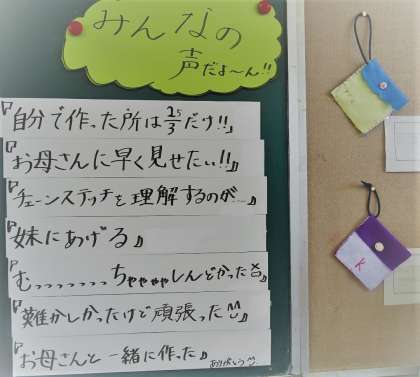 みんなの
声だよ〜ん!!
『自分で作った所は2.5/3だけ!!』
『お母さんに早く見せたい!!』
『チェーンステッチを理解するのが……』
『妹にあげる』
『む………ちゃゃゃゃしんどかった』
『難かしかったけど頑張った』
『お母さんと一緒に作った』
ありがとう
K